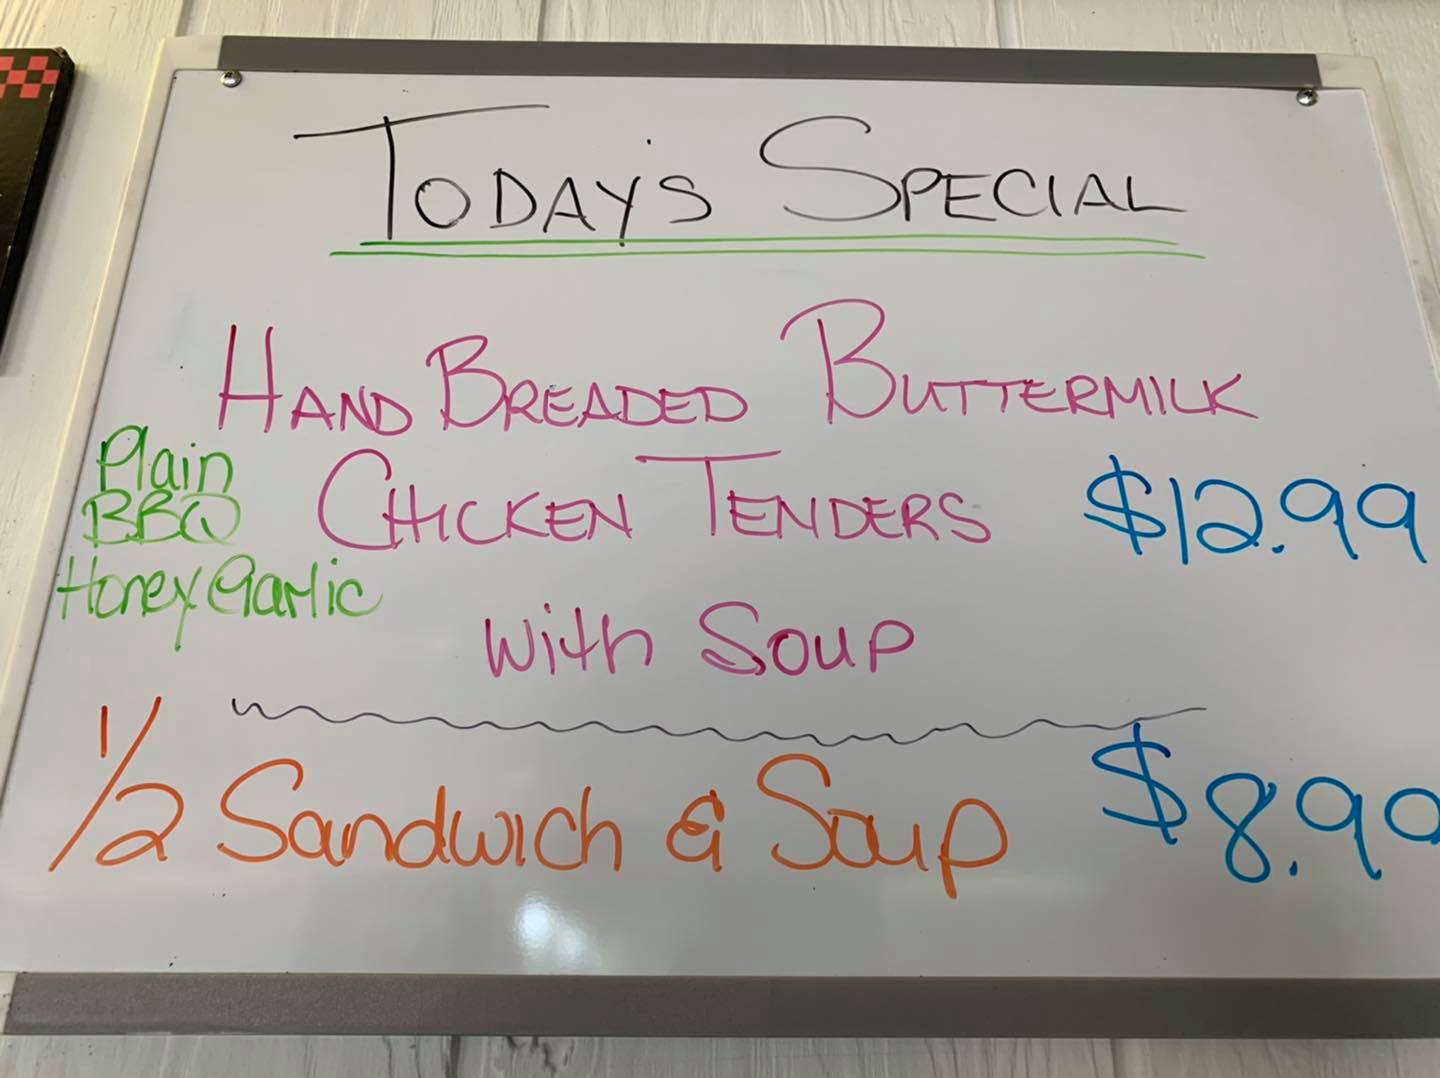 TODAY'S SPECIAL
HAND BREADED BUTTERMILK
CHICKEN TENDERS $12.99
with SOUP
Plain
BBQ
Honey Garlic
1/2 Sandwich & Soup $8.99